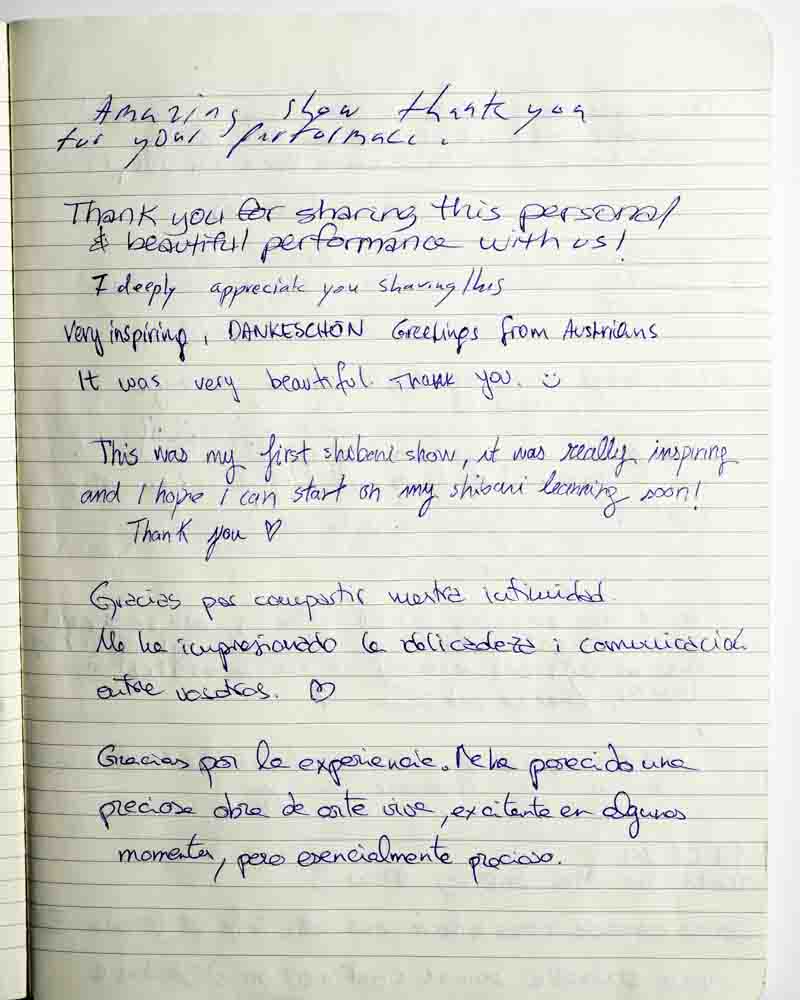 Amazing show thank you
for your performace.
Thank you for sharing this personal
& beautiful performance with us!
I deeply appreciate you sharing this
Very inspiring, DANKESCHÖN Greetings from Austrians
It was very beautiful. Thank you. ☺
This was my first shibari show, it was really inspiring
and I hope I can start on my shibari learning soon!
Thank you ♡
Gracias por compartir vuestra intimidad.
Me ha impresionado la delicadeza i comunicación
entre vosotros. ♡
Gracias por la experiencia. Me ha parecido una
preciosa obra de arte viva, excitante en algunos
momentos, pero esencialmente precioso.